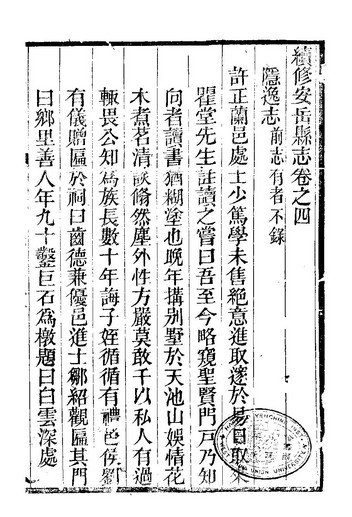 續修安岳縣志卷之四
隱逸志 前志有者不錄
許正蘭邑處士少篤學未售絕意進取邃於易因取來
瞿堂先生註讀之嘗曰吾至今略窺聖賢門戶乃知
向者讀書猶糊塗也晚年搆别墅於天池山娛情花
木煮茗清談翛然塵外性方嚴莫敢干以私人有過
輒畏公知為族長數十年誨子姪循循有禮邑侯劉
有儀贈匾於祠曰齒德兼優邑進士鄒紹觀匾其門
曰鄉里善人年九十鑿巨石為墩題曰白雲深處